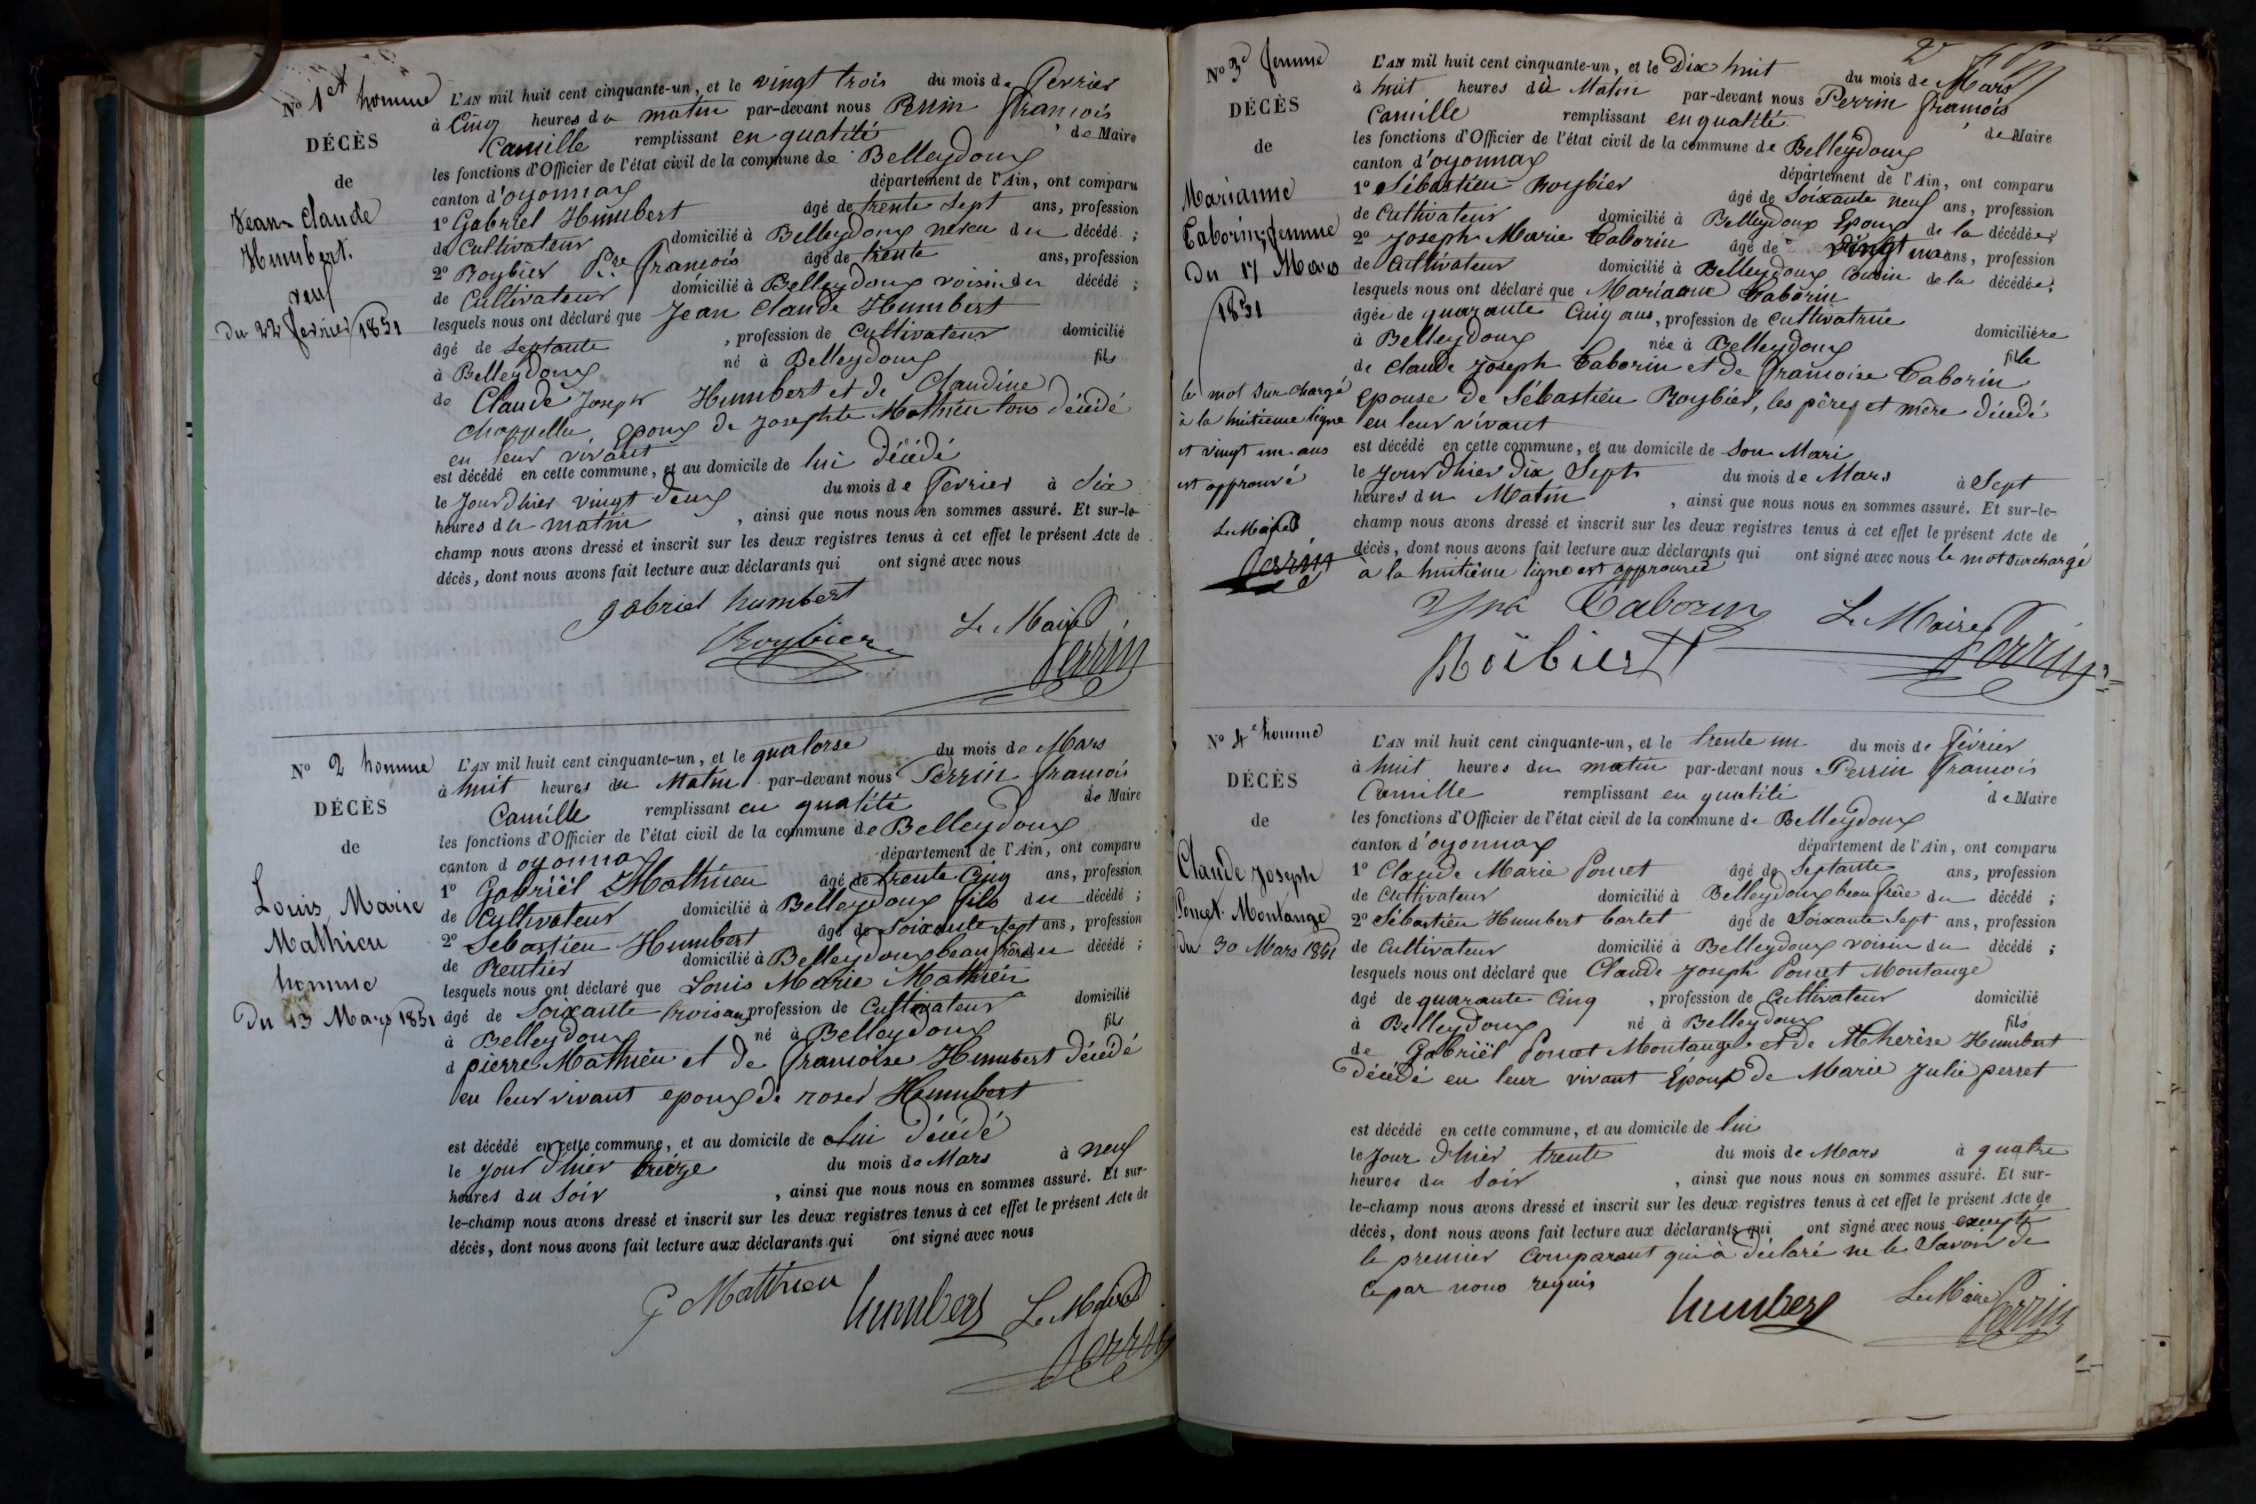 No 1er homme
DÉCÈS
de
Jean Claude
Humbert.
veuf
Du 22 fevrier 1851
L'AN mil huit cent cinquante-un, et le vingt trois du mois de Fevrier
à Cinq heures du matin par-devant nous Perrin François
Camille remplissant en qualité de Maire
les fonctions d'Officier de l'état civil de la commune de Belleydoux
canton d'oyonnax département de l'Ain, ont comparu
1º Gabriel Humbert âgé de trente sept ans, profession
de Cultivateur domicilié à Belleydoux neveu du décédé ;
2º Roybier Pre François âgé de trente ans, profession
de Cultivateur domicilié à Belleydoux voisin du décédé ;
lesquels nous ont déclaré que Jean Claude Humbert
âgé de Septante , profession de Cultivateur domicilié
à Belleydoux né à Belleydoux fils
de Claude Joseph Humbert et de Claudine
Chappellu, Epoux de Josephte Mathieu tous décédé
en leur vivant
est décédé en cette commune, et au domicile de lui décédé
le jour d'hier vingt deux du mois de Fevrier à dix
heures du matin , ainsi que nous nous en sommes assuré. Et sur-le-
champ nous avons dressé et inscrit sur les deux registres tenus à cet effet le présent Acte de
décès, dont nous avons fait lecture aux déclarants qui ont signé avec nous
gabriel humbert
Roybier Le Maire
Perrin
No 2 homme
DÉCÈS
de
Louis Marie
Mathieu
homme
Du 13 Mars 1851
L'AN mil huit cent cinquante-un, et le quatorse du mois de Mars
à huit heures du Matin par-devant nous Perrin François
Camille remplissant en qualité de Maire
les fonctions d'Officier de l'état civil de la commune de Belleydoux
canton d oyonnax département de l'Ain, ont comparu
1º Gabriël Mathieu âgé de trente Cinq ans, profession
de Cultivateur domicilié à Belleydoux fils du décédé ;
2º Sebastien Humbert âgé de Soixante Sept ans, profession
de Rentier domicilié à Belleydoux beau frère du décédé ;
lesquels nous ont déclaré que Louis Marie Mathieu
âgé de Soixante trois ans profession de Cultivateur domicilié
à Belleydoux né à Belleydoux fils
d pierre Mathieu et de françoise Humbert décédé
en leur vivant epoux de roses Humbert
est décédé en cette commune, et au domicile de Lui décédé
le jour d'hier treize du mois de Mars à neuf
heures du Soir , ainsi que nous nous en sommes assuré. Et sur-
le-champ nous avons dressé et inscrit sur les deux registres tenus à cet effet le présent Acte de
décès, dont nous avons fait lecture aux déclarants qui ont signé avec nous
G Matthieu humbert Le Maire
Perrin
2e
No 3e femme
DÉCÈS
de
Marianne
Taborin, femme
Du 17 Mars
1851
le mot surchargé
à la huitieme ligne
et vingt un ans
est approuvé
Le Maire
Perrin
L'AN mil huit cent cinquante-un, et le Dix huit du mois de Mars
à huit heures du Matin par-devant nous Perrin François
Camille remplissant en qualité de Maire
les fonctions d'Officier de l'état civil de la commune de Belleydoux
canton d'oyonnax département de l'Ain, ont comparu
1º Sébastien Roybier âgé de Soixante neuf ans, profession
de Cultivateur domicilié à Belleydoux Epoux de la décédée,
2º Joseph Marie Taborin âgé de vingt un ans, profession
de Cultivateur domicilié à Belleydoux Cousin de la décédée;
lesquels nous ont déclaré que Marianne Taborin
âgée de quarante Cinq ans, profession de cultivatrice domiciliére
à Belleydoux née à Belleydoux fille
de Claude Joseph Taborin et de françoise Taborin
epouse de Sébastien Roybier, les pères et mère décédé
en leur vivant
est décédé en cette commune, et au domicile de Son Mari
le jour d'hier dix Sept du mois de Mars à Sept
heures du Matin , ainsi que nous nous en sommes assuré. Et sur-le-
champ nous avons dressé et inscrit sur les deux registres tenus à cet effet le présent Acte de
décès, dont nous avons fait lecture aux déclarants qui ont signé avec nous le mot surchargé
à la huitième ligne est approuvée
Taborin Le Maire
Roibier Perrin
No 4e homme
DÉCÈS
de
Claude Joseph
Poncet Montange
du 30 Mars 1851
L'AN mil huit cent cinquante-un, et le trente un du mois de Février
à huit heures du matin par-devant nous Perrin François
Camille remplissant en qualité de Maire
les fonctions d'Officier de l'état civil de la commune de Belleydoux
canton d'oyonnax département de l'Ain, ont comparu
1º Claude Marie Poncet âgé de Septante ans, profession
de Cultivateur domicilié à Belleydoux beau frère du décédé ;
2º Sébastien Humbert Cartet âgé de Soixante Sept ans, profession
de Cultivateur domicilié à Belleydoux voisin du décédé ;
lesquels nous ont déclaré que Claude Joseph Poncet Montange
âgé de quarante Cinq , profession de Cultivateur domicilié
à Belleydoux né à Belleydoux fils
de Gabriël Poncet Montange et de Mtherèse Humbert
décédé en leur vivant Epoux de Marie Julie perret
est décédé en cette commune, et au domicile de lui
le Jour d'hier trente du mois de Mars à quatre
heures du Soir , ainsi que nous nous en sommes assuré. Et sur-
le-champ nous avons dressé et inscrit sur les deux registres tenus à cet effet le présent Acte de
décès, dont nous avons fait lecture aux déclarants qui ont signé avec nous excepté
le premier comparant qui à déclaré ne le Savoir de
ce par nous requis
humbert Le Maire
Perrin